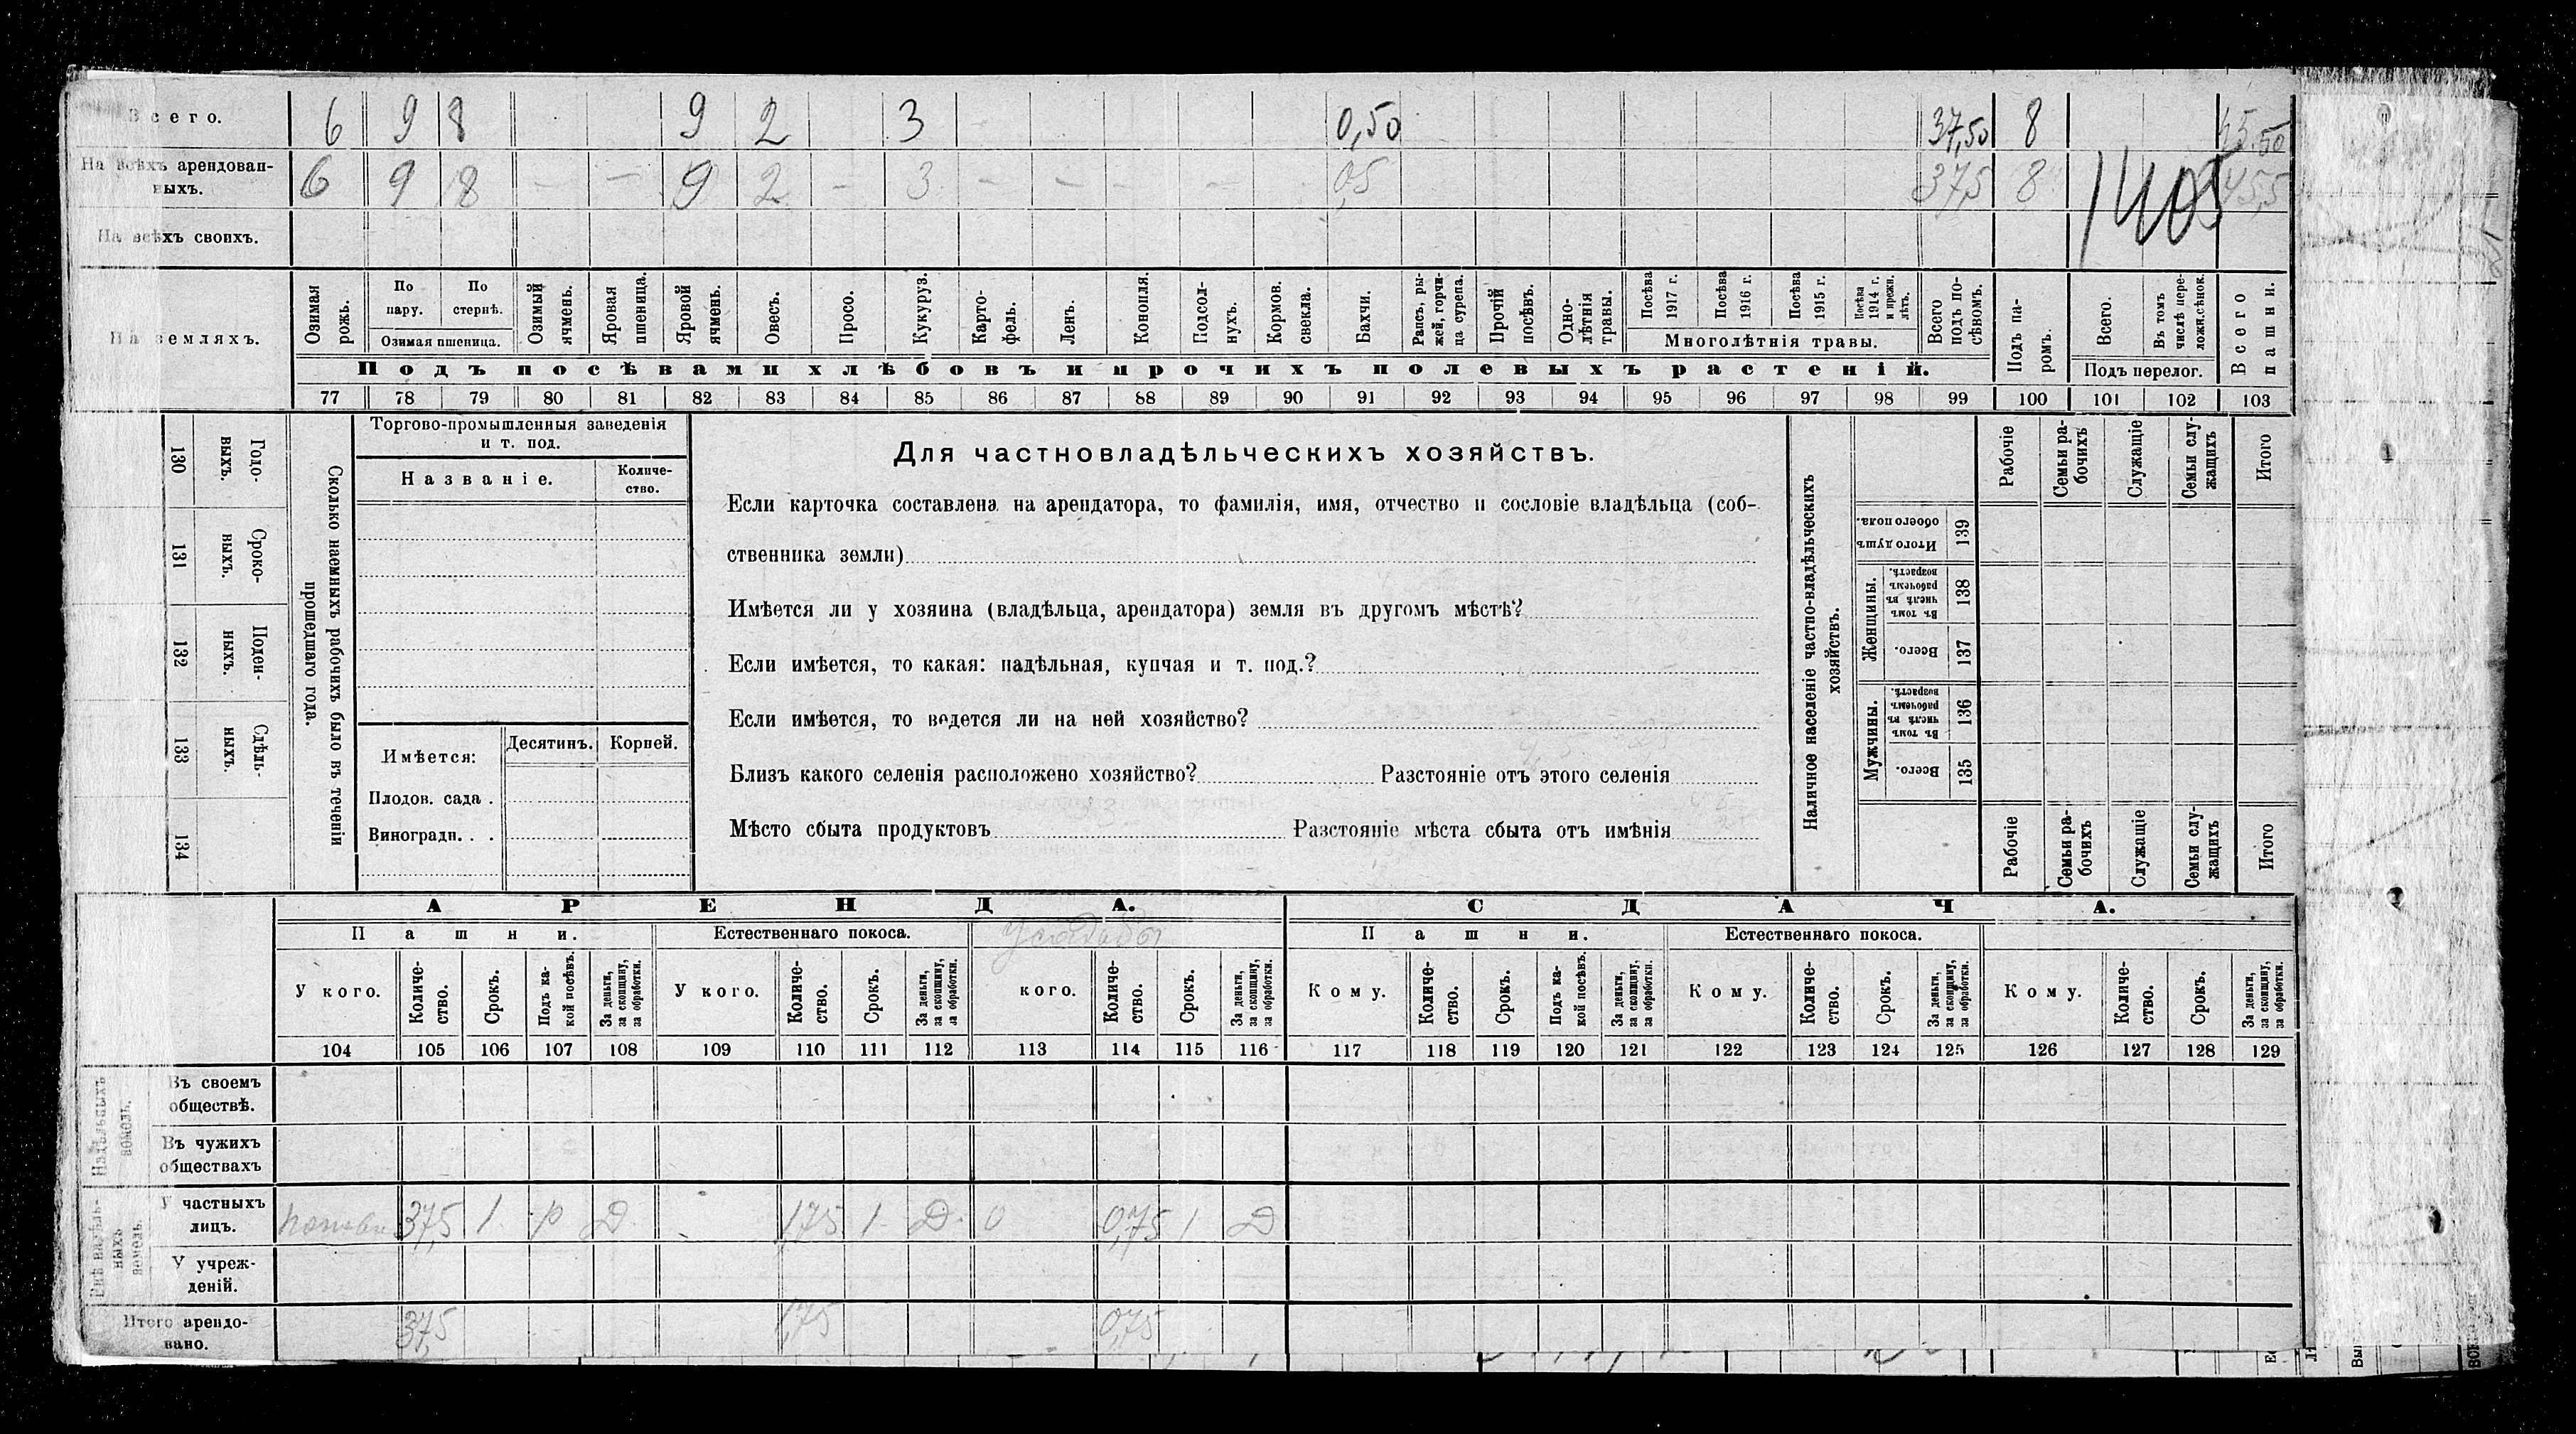 Всего. 6 9 8 9 2 3 0,50 37,50 8 45,50
На всѣхъ арендованныхъ. 6 9 8 — — 9 2 — 3 — — — — 0,5 37,5 8 45,5
1405
На всѣхъ своихъ.
На земляхъ.
Озимая рожь.
По пару.
По стернѣ.
Озимая пшеница.
Озимый ячмень.
Яровая пшеница.
Яровой ячмень.
Овесъ.
Просо.
Кукуруз.
Карто-фель.
Ленъ.
Конопля.
Подсол-нухъ.
Кормов. свекла.
Бахчи.
Рапсъ, ры-жей, горчи-ца сурепа.
Прочій посѣвъ.
Одно-лѣтнія травы.
Посѣва 1917 г.
Посѣва 1916 г.
Посѣва 1915 г.
Посѣва 1914 г. и прежн. лѣтъ.
Многолѣтнія травы.
Всего подъ по-сѣвомъ.
Подъ па-ромъ.
Всего.
Въ томъ числѣ пере-ложн.сѣнок.
Подъ перелог.
Всего пашни.
Подъ посѣвами хлѣбовъ и прочихъ полевыхъ растеній.
77 78 79 80 81 82 83 84 85 86 87 88 89 90 91 92 93 94 95 96 97 98 99 100 101 102 103
130 Годо-выхъ.
131 Сроко-выхъ.
132 Поден-ныхъ.
133 Сдѣль-ныхъ.
134
Сколько наемныхъ рабочихъ было въ теченіи
прошедшаго года.
Торгово-промышленныя заведенія
и т. под.
Названіе. Количе-ство.
Имѣется: Десятинъ. Корней.
Плодов. сада .
Виноградн. . .
Для частновладѣльческихъ хозяйствъ.
Если карточка составлена на арендатора, то фамилія, имя, отчество и сословіе владѣльца (соб-
ственника земли)
Имѣется ли у хозяина (владѣльца, арендатора) земля въ другомъ мѣстѣ?
Если имѣется, то какая: надѣльная, купчая и т. под.?
Если имѣется, то ведется ли на ней хозяйство?
Близъ какого селенія расположено хозяйство? Разстояніе отъ этого селенія
Мѣсто сбыта продуктовъ Разстояніе мѣста сбыта отъ имѣнія
Наличное населеніе частно-владѣльческихъ
хозяйствъ.
Рабочіе
Семьи ра-бочихъ
Служащіе
Семьи слу-жащихъ
Итого
Итого душъ обоего пола. 139
Женщины.
Въ томъ числѣ въ рабочемъ возрастѣ. 138
Всего. 137
Мужчины.
Въ томъ числѣ въ рабочемъ возрастѣ. 136
Всего. 135
Рабочіе
Семьи ра-бочихъ
Служащіе
Семьи слу-жащихъ
Итого
АРЕНДА. СДАЧА.
Пашни. Естественнаго покоса. Усадьбы Пашни. Естественнаго покоса.
У кого. Количе-ство. Срокъ. Подъ ка-кой посѣвъ. За деньги, за скопщину, за обработки.
У кого. Количе-ство. Срокъ. За деньги, за скопщину, за обработки.
кого. Количе-ство. Срокъ. За деньги, за скопщину, за обработки.
Кому. Количе-ство. Срокъ. Подъ ка-кой посѣвъ. За деньги, за скопщину, за обработки.
Кому. Количе-ство. Срокъ. За деньги, за скопщину, за обработки.
Кому. Количе-ство. Срокъ. За деньги, за скопщину, за обработки.
104 105 106 107 108 109 110 111 112 113 114 115 116 117 118 119 120 121 122 123 124 125 126 127 128 129
Надѣльныхъ земель.
Въ своемъ обществѣ.
Въ чужихъ обществахъ
Внѣ надѣль-ныхъ земель.
У частныхъ лицъ. 37,5 1 р Д 1,75 1 Д 0,75 1 Д
У учреж-деній.
Итого арендо-вано. 37,5 1,75 0,75